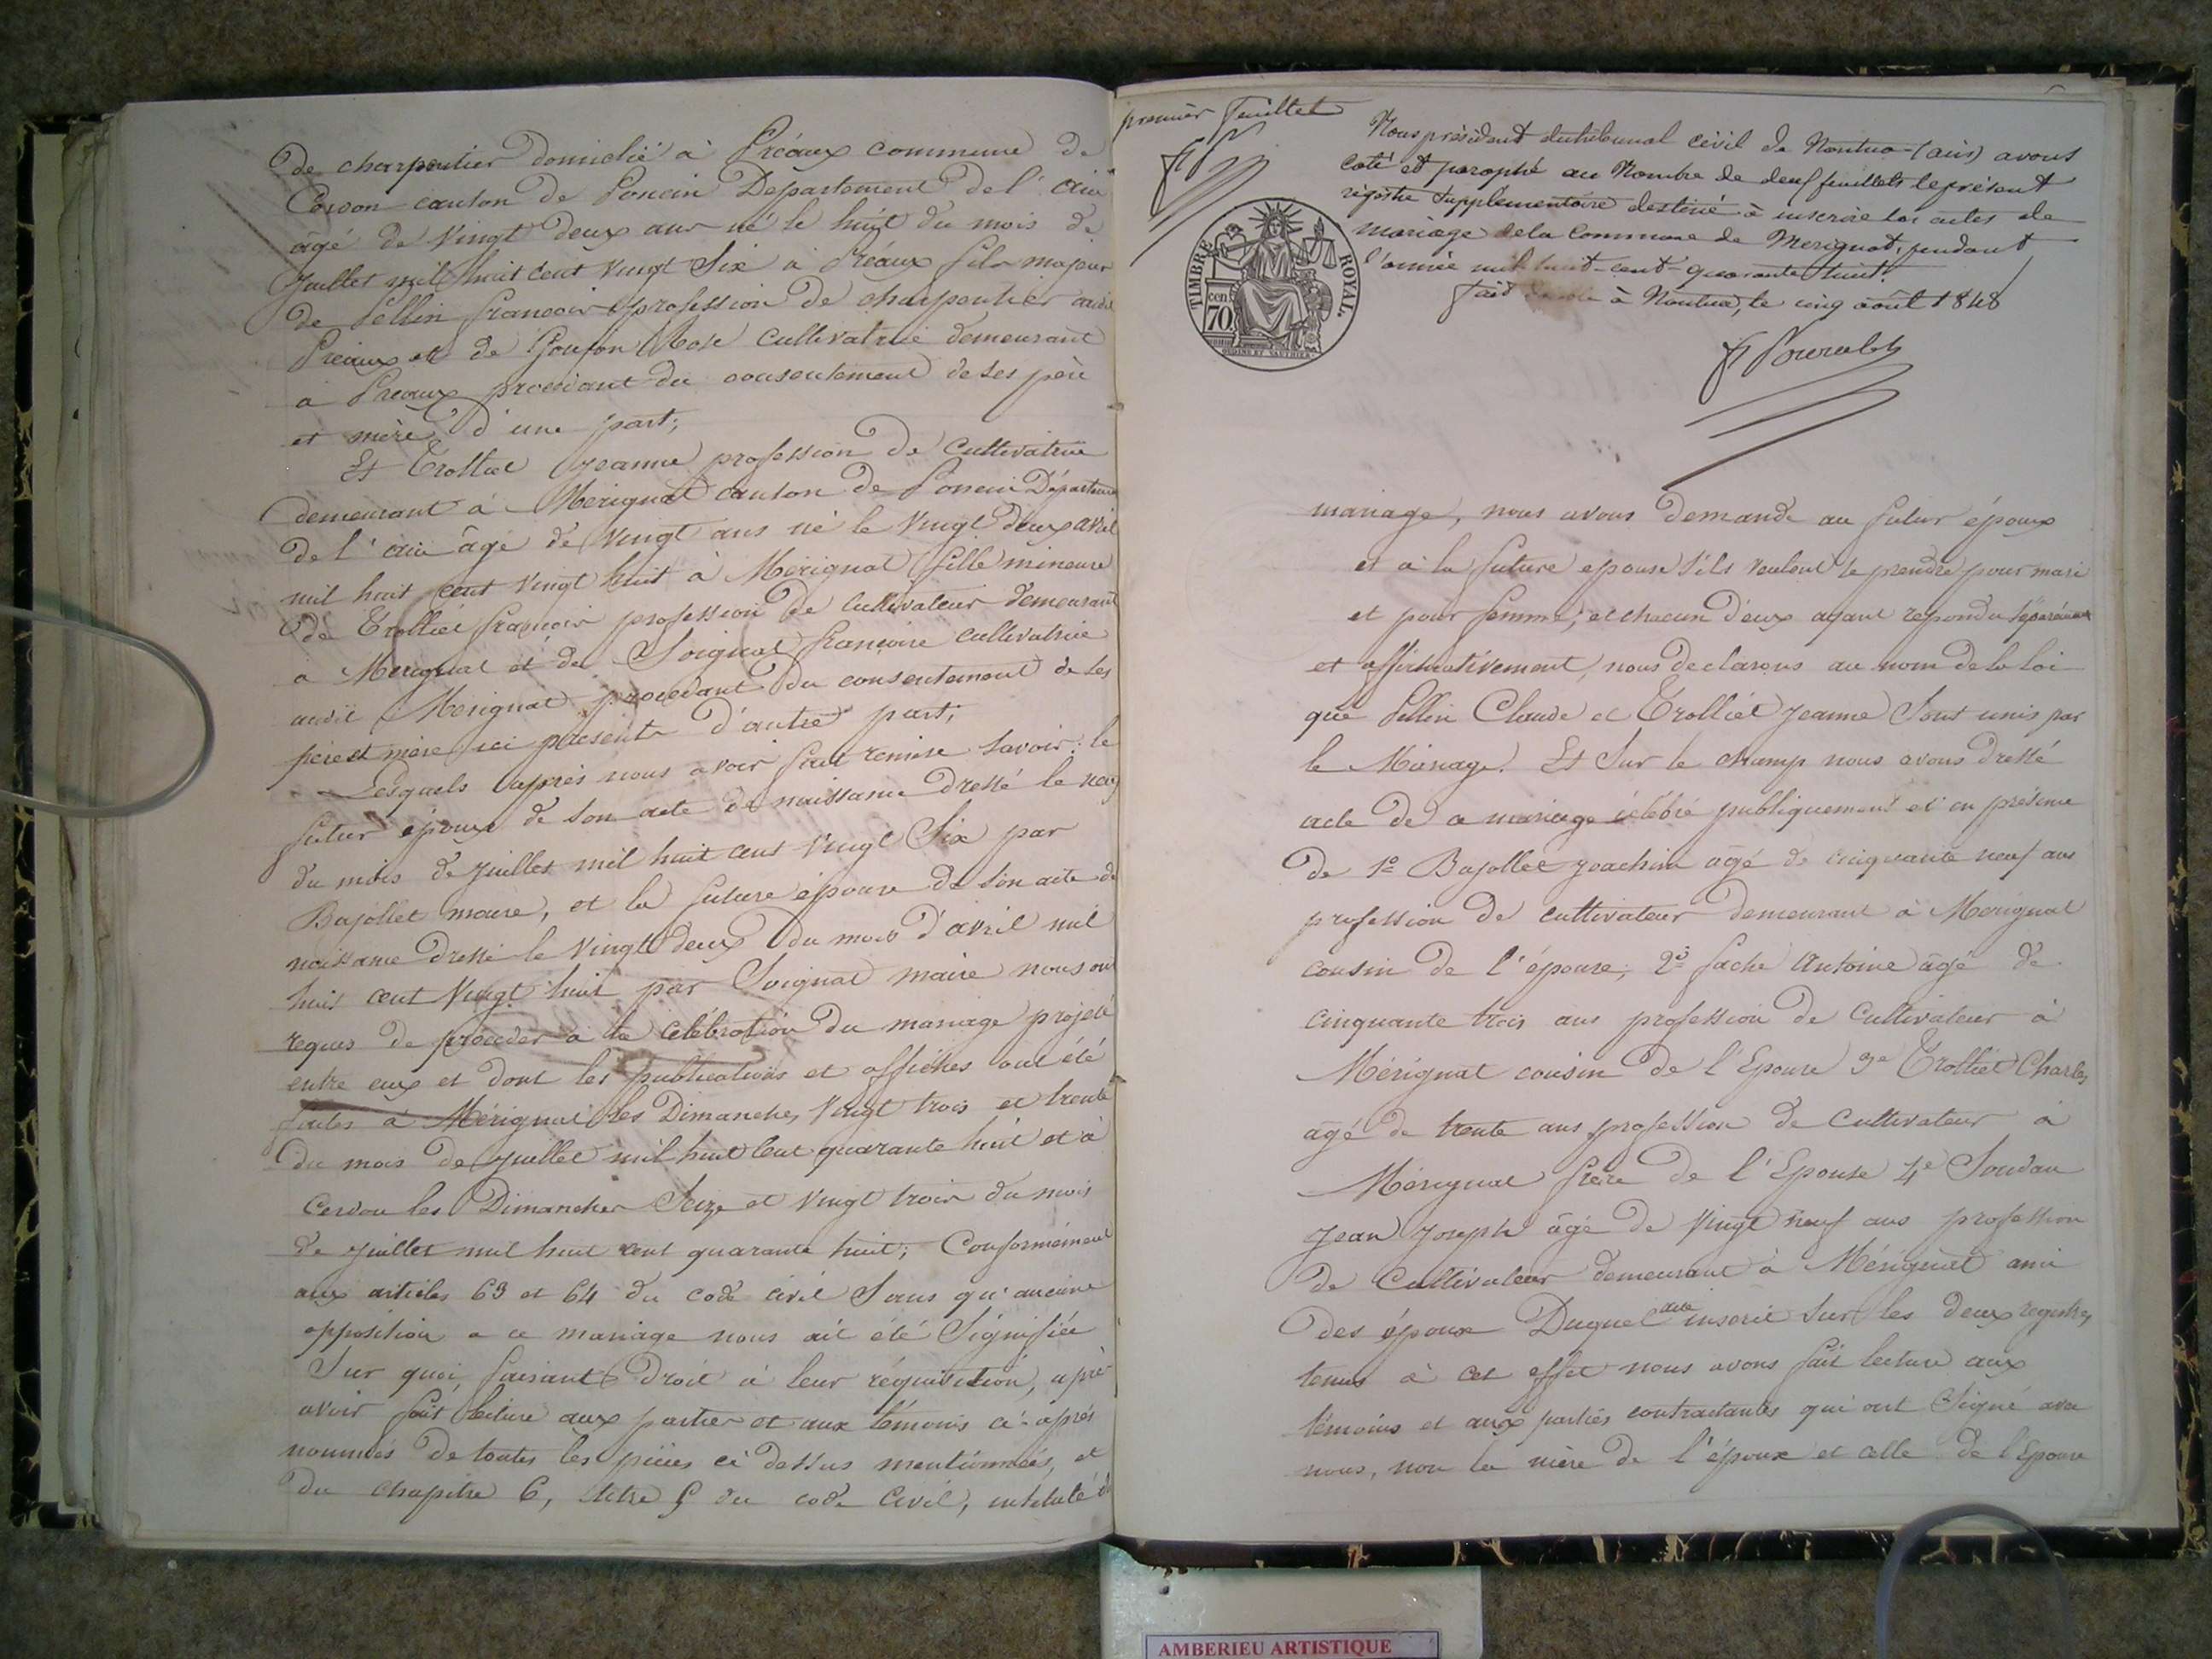 de charpentier domicilié à Préaux commune de
Cerdon canton de Poncin Département de l'ain
âgé de Vingt deux ans né le huit du mois de
Juillet mil huit cent vingt Six à Préaux fils majeur
de Pellin françois profession de charpentier audit
Préaux et de Goujon Rose cultivatrice demeurant
à Préaux procédant du consentement de ses père
et mère d'une part;
Et Trolliet Jeanne profession de Cultivatrice
demeurant à Mérignat canton de Poncin Départemen
de l'ain âgé de vingt ans né le Vingt deux avril
mil huit cent vingt huit à Mérignat fille mineure
de Trolliet françois profession de Cultivateur demeurant
à Mérignat et de Soignat françoise cultivatrice
audit Mérignat procédant du consentement de ses
père et mère ici présents d'autre part;
Lesquels après nous avoir fait remise savoir: le
futur époux de son acte de naissance dressé le neuf
du mois de juillet mil huit cent vingt Six par
Bajollet maire, et la future épouse de son acte de
naissance dressé le Vingt deux du mois d'avril mil
huit cent vingt huit par Soignat maire nous ont
requis de procéder à la célébration du mariage projeté
entre eux et dont les publications et affiches ont été
faites à Mérignat les Dimanches Vingt trois et trente
du mois de juillet mil huit cent quarante huit et à
Cerdon les Dimanches Seize et Vingt trois du mois
de juillet mil huit cent quarante huit; Conformément
aux articles 63 et 64 du code civil Sans qu'aucune
opposition a ce mariage nous ait été Signifiée
Sur quoi, faisant Droit à leur réquisition, après
avoir fait lecture aux parties et aux témoins ci-après
nommés de toutes les pièces ci dessus mentionnées, et
du chapitre 6, titre 5 du code Civil, intitulé du
premier feuillet
Nous président du tribunal civil de Nantua (ain) avons
coté et paraphé au Nombre de deux feuillets le présent
régistre Supplémentaire destiné à inscrire les actes de
mariage de la Commune de Merignat, pendant
l'année mil huit-cent-quarante huit.
fait à Nantua, le cinq août 1848
TIMBRE ROYAL.
cen. 70
mariage, nous avons demandé au futur époux
et à la future épouse s'ils veulent se prendre pour mari
et pour femme; et chacun d'eux ayant répondu séparément
et affirmativement, nous déclarons au nom de la loi
que Pellin Claude et Trolliet Jeanne Sont unis par
le Mariage. Et Sur le champ nous avons dressé
acte de ce mariage célébré publiquement et en présence
de 1º Bajollet Joachim âgé de cinquante neuf ans
profession de cultivateur demeurant à Mérignat
cousin de l'épouse; 2º fache Antoine âgé de
cinquante trois ans profession de Cultivateur à
Mérignat cousin de l'Epouse 3e Trolliet Charles
âgé de trente ans profession de Cultivateur à
Mérignat frère de l'Epouse 4e Soudan
Jean Joseph âgé de Vingt neuf ans profession
de Cultivateur demeurant à Mérignat ami
des époux Duquel acte inscrit Sur les deux registres
tenus à cet effet nous avons fait lecture aux
témoins et aux parties contractantes qui ont Signé avec
nous, non la mère de l'époux et celle de l'Epouse
AMBERIEU ARTISTIQUE